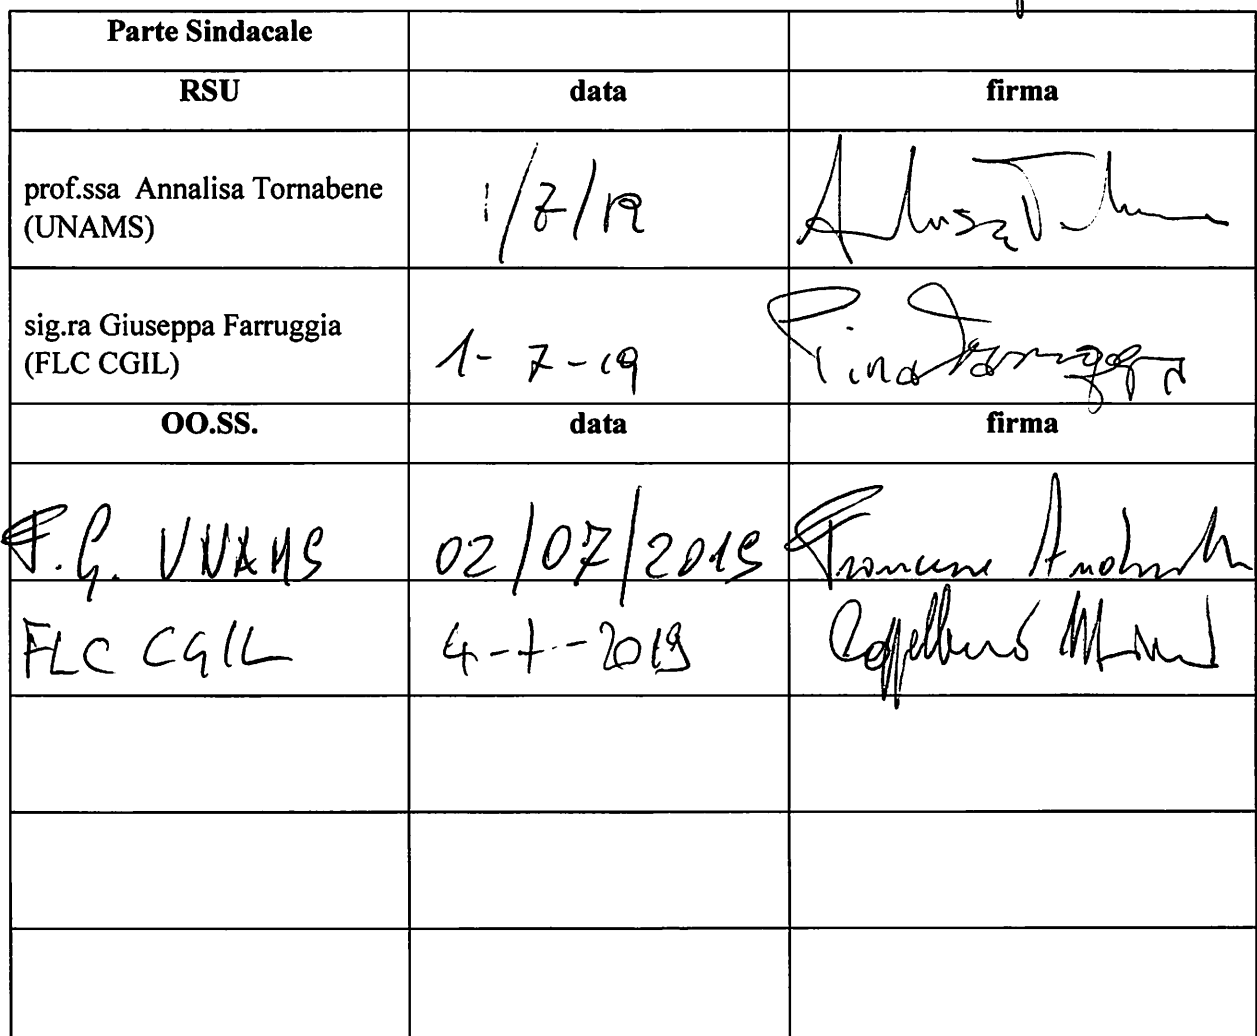 Parte Sindacale
RSU data firma
prof.ssa Annalisa Tornabene
(UNAMS)
1/7/19
sig.ra Giuseppa Farruggia
(FLC CGIL)
1-7-19 Pina Farruggia
OO.SS. data firma
F.G. UNAMS 02/07/2019 Francesco
FLC CGIL 4-7-2019